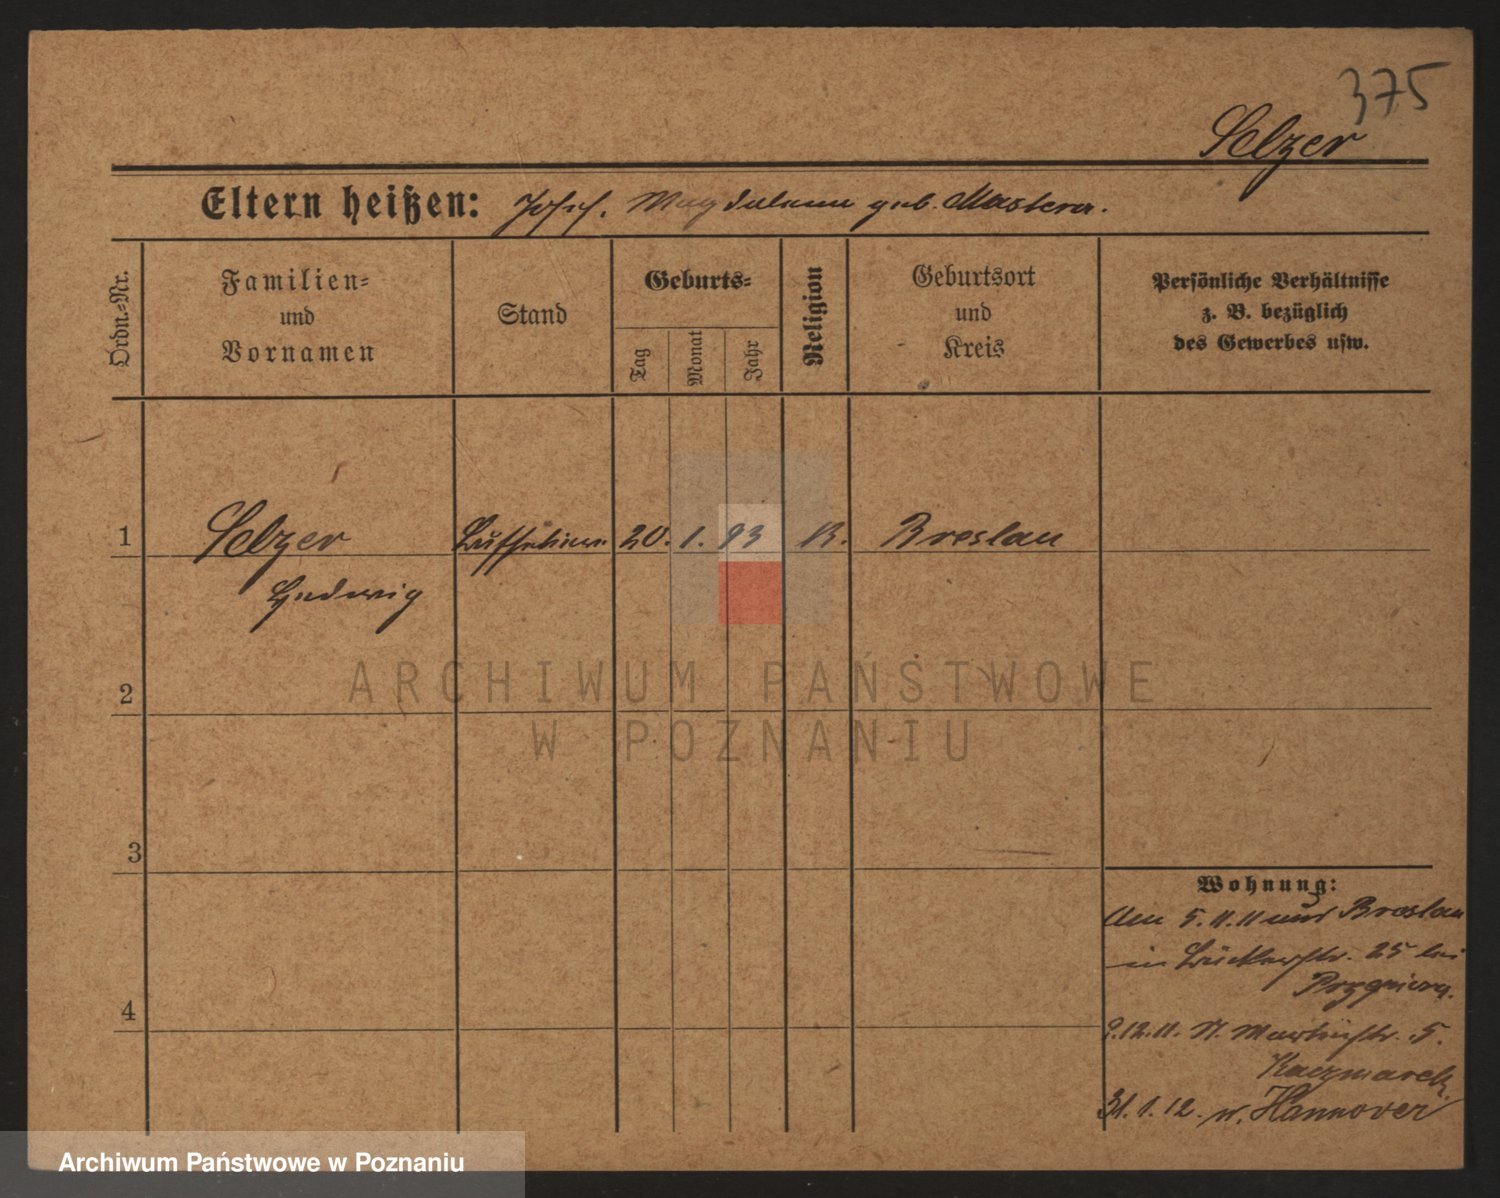 375
Selzer
Eltern heißen: Josef. Magdalena geb. Mastera.
Ordn.-Nr.
Familien-
und
Vornamen
Stand
Geburts-
Tag
Monat
Jahr
Religion
Geburtsort
und
Kreis
Persönliche Verhältnisse
z. B. bezüglich
des Gewerbes usw.
1
Selzer
20. 1. 93
K.
Breslau
Ludwig
ARCHIWUM PAŃSTWOWE
W POZNANIU
2
3
4
Wohnung:
Am 5.11.11 aus Breslau
in 25 bei
9.12.11. St. Martinstr. 5.
Kaczmarek.
31.1.12. n. Hannover
Archiwum Państwowe w Poznaniu